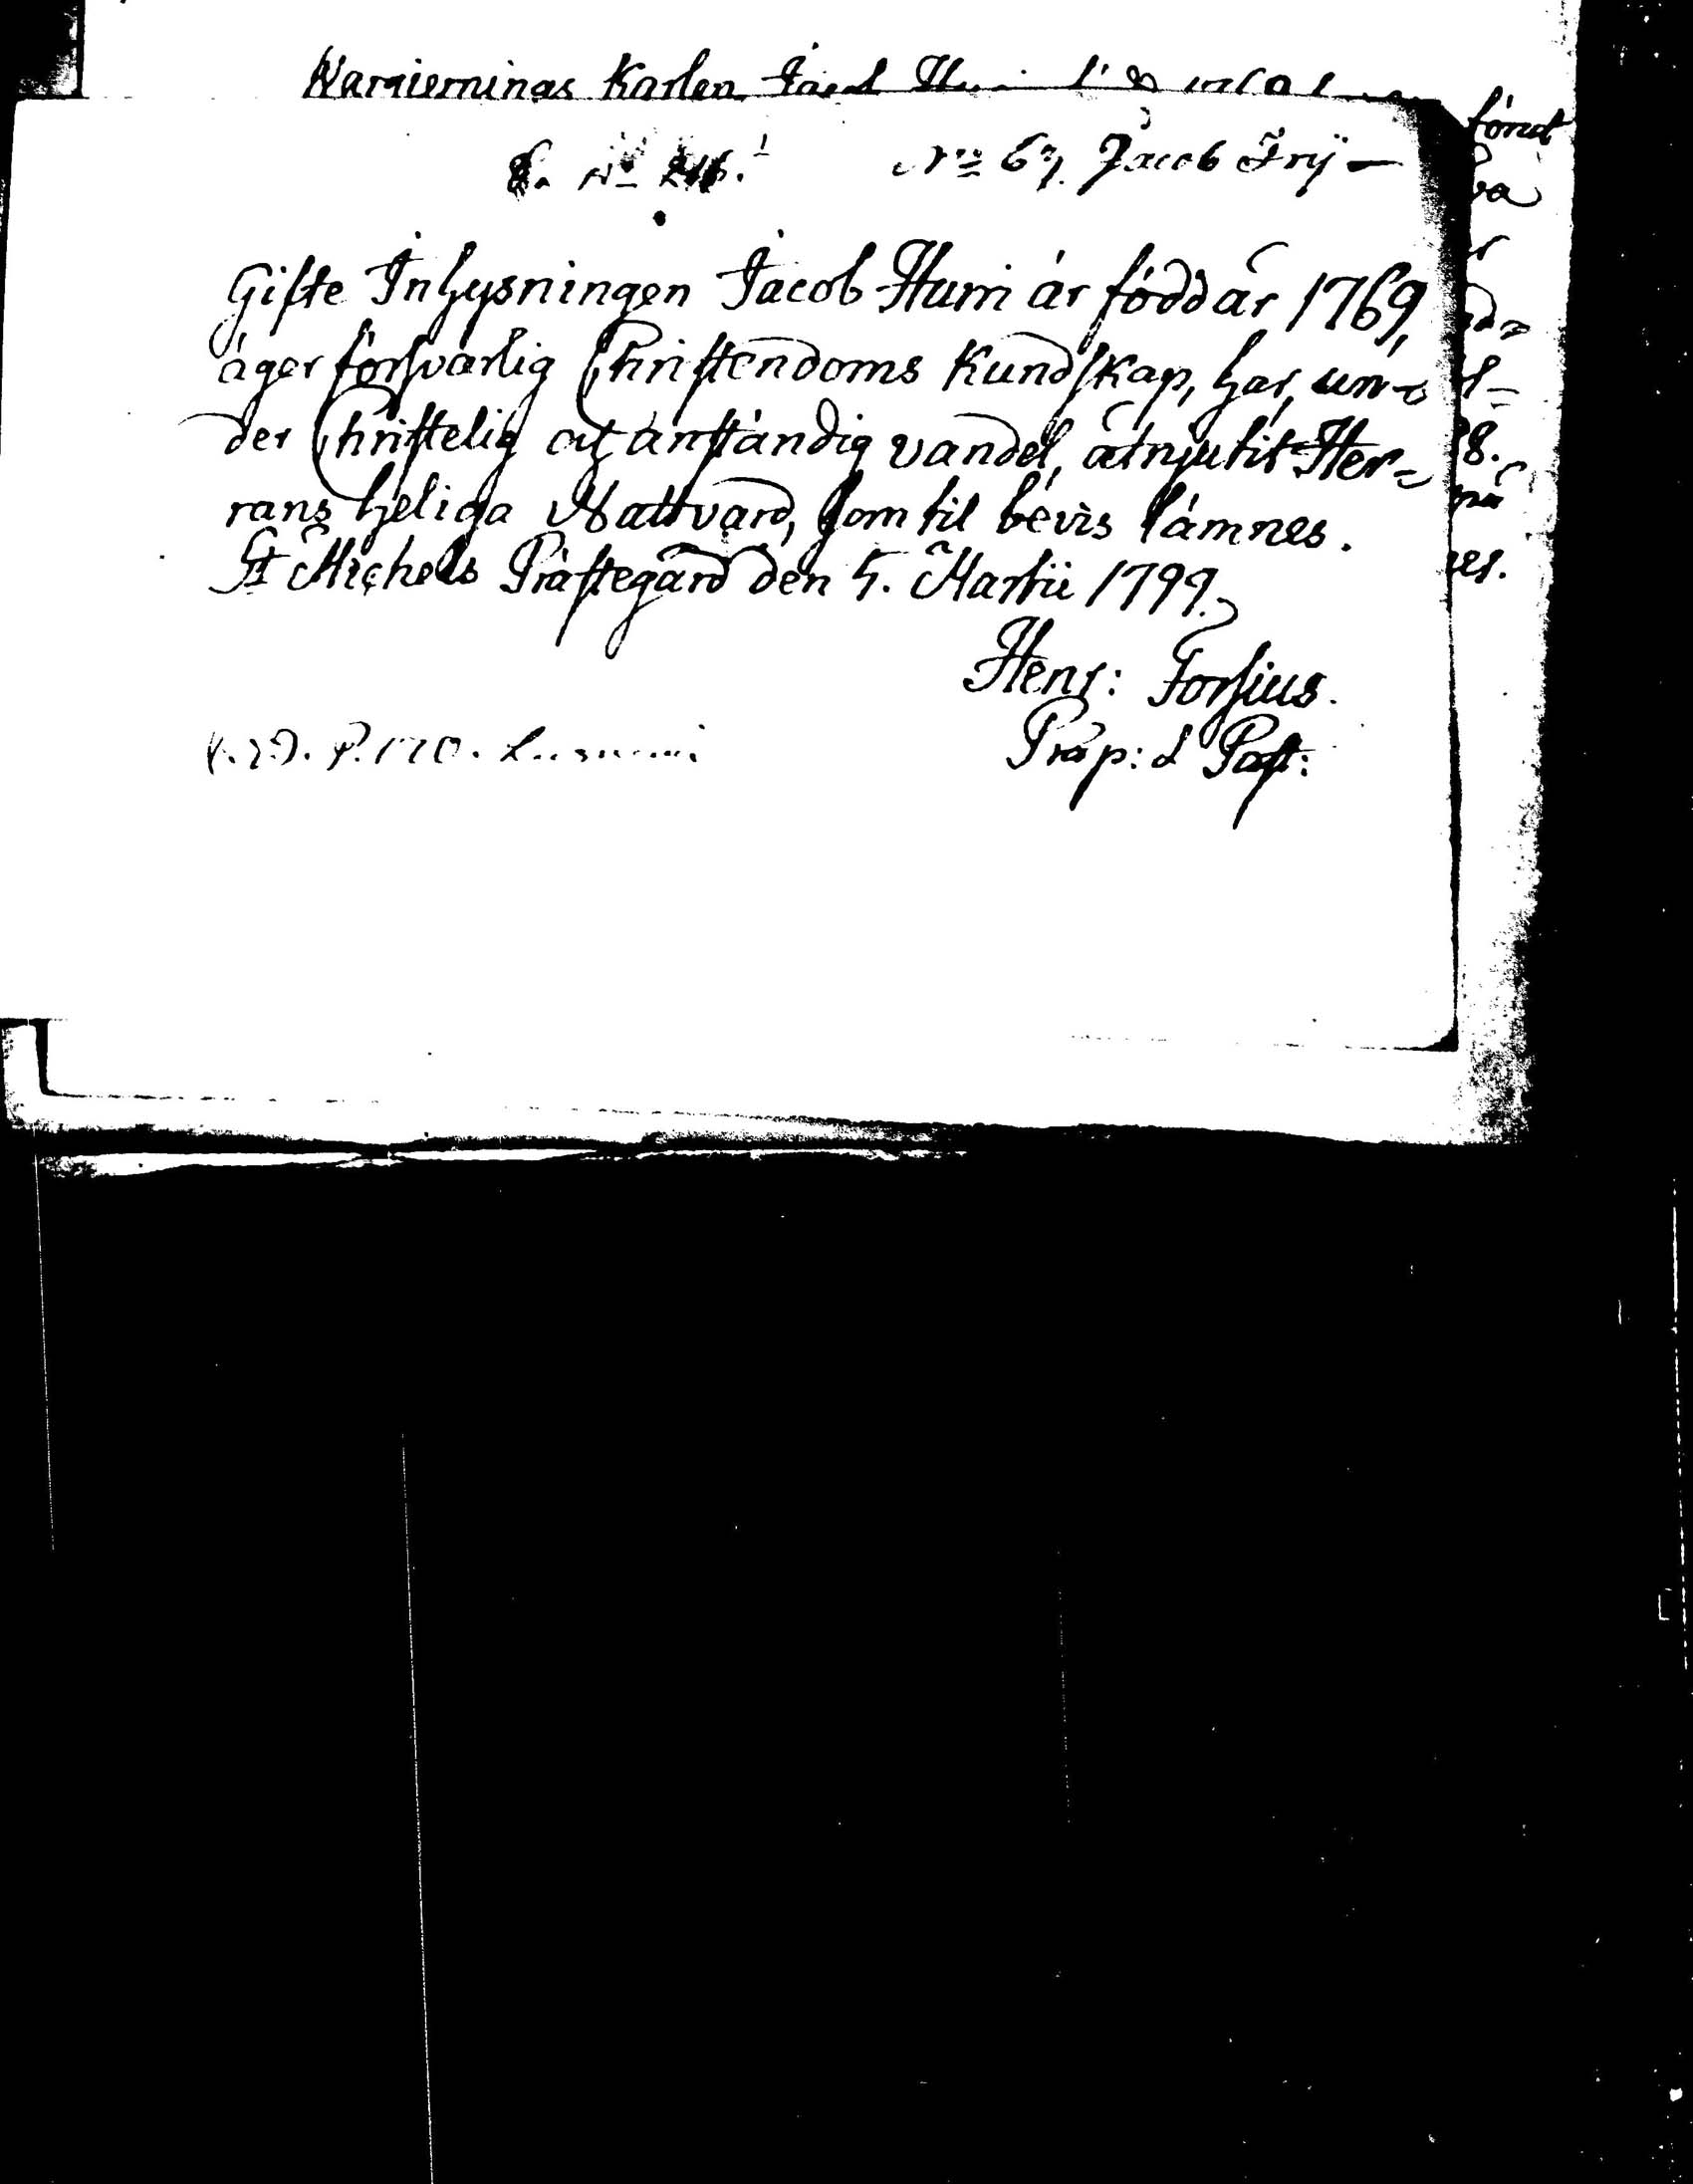 Narfiernings Karlen Jacob
N:o 67. Jacob Frÿ —
Gifte Inhysningen Jacob Hurri är född år 1769,
äger försvarlig Christendoms Kundskap, har, un-
der Christelig och anständig vandel, åtnjutit Her-
rans heliga Nattvard, som til bevis lämnes.
St Michels Prästegård den 5. Martii 1799.
Henr: Forsius.
Præp: & Past:
P. 170.